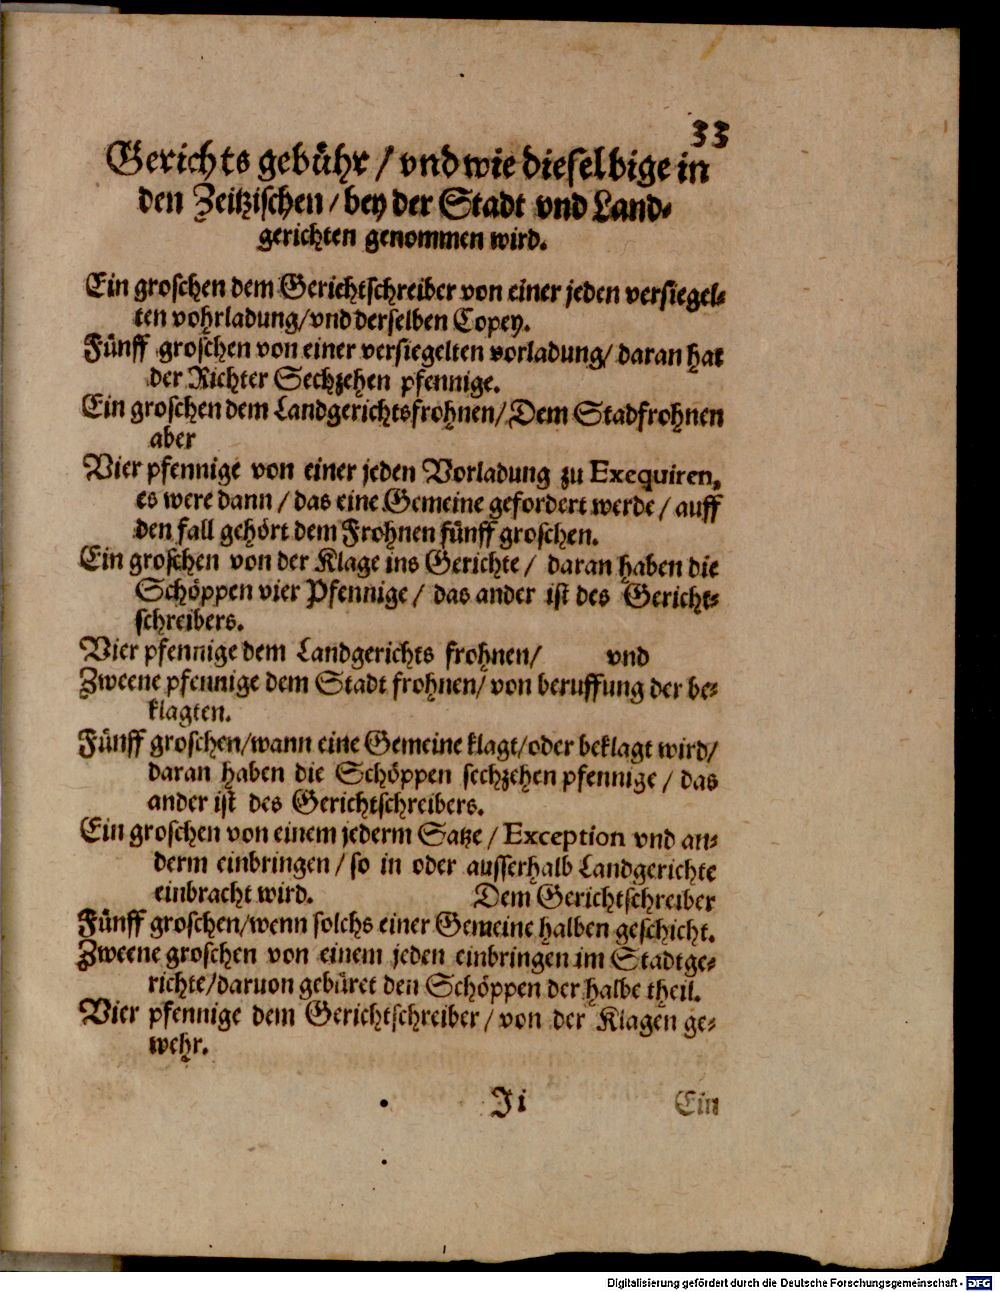 33
Gerichts gebühr / vnd wie dieselbige in
den Zeitzischen / bey der Stadt vnd Land-
gerichten genommen wird.
Ein groschen dem Gerichtschreiber von einer jeden versiegel-
ten vohrladung/vnd derselben Copey.
Fünff groschen von einer versiegelten vorladung/ daran hat
der Richter Sechzehen pfennige.
Ein groschen dem Landgerichtsfrohnen/ Dem Stadfrohnen
aber
Vier pfennige von einer jeden Vorladung zu Exequiren,
es were dann / das eine Gemeine gefordert werde / auff
den fall gehört dem Frohnen fünff groschen.
Ein groschen von der Klage ins Gerichte / daran haben die
Schöppen vier Pfennige / das ander ist des Gericht-
schreibers.
Vier pfennige dem Landgerichts frohnen/ vnd
Zweene pfennige dem Stadt frohnen/ von beruffung der be-
klagten.
Fünff groschen/wann eine Gemeine klagt/oder beklagt wird/
daran haben die Schöppen sechzehen pfennige / das
ander ist des Gerichtschreibers.
Ein groschen von einem jederm Satze / Exception vnd an-
derm einbringen / so in oder ausserhalb Landgerichte
einbracht wird. Dem Gerichtschreiber
Fünff groschen/wenn solchs einer Gemeine halben geschicht.
Zweene groschen von einem jeden einbringen im Stadtge-
richte/daruon gebüret den Schöppen der halbe theil.
Vier pfennige dem Gerichtschreiber / von der Klagen ge-
wehr.
Ji Ein
Digitalisierung gefördert durch die Deutsche Forschungsgemeinschaft - DFG